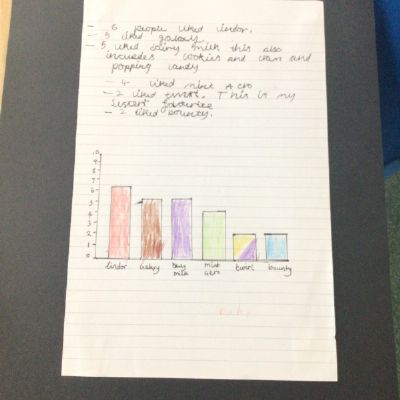 - 6 people liked lindor.
- 5 liked galaxy.
- 5 liked dairy milk this also
includes cookies and cream and
popping candy
- 4 liked mint Aero
- 2 liked twirl. This is my
favourite
- 2 liked bounty.
10
9
8
7
6
5
4
3
2
1
0
lindor Galaxy Dairy milk mint aero twirl bounty